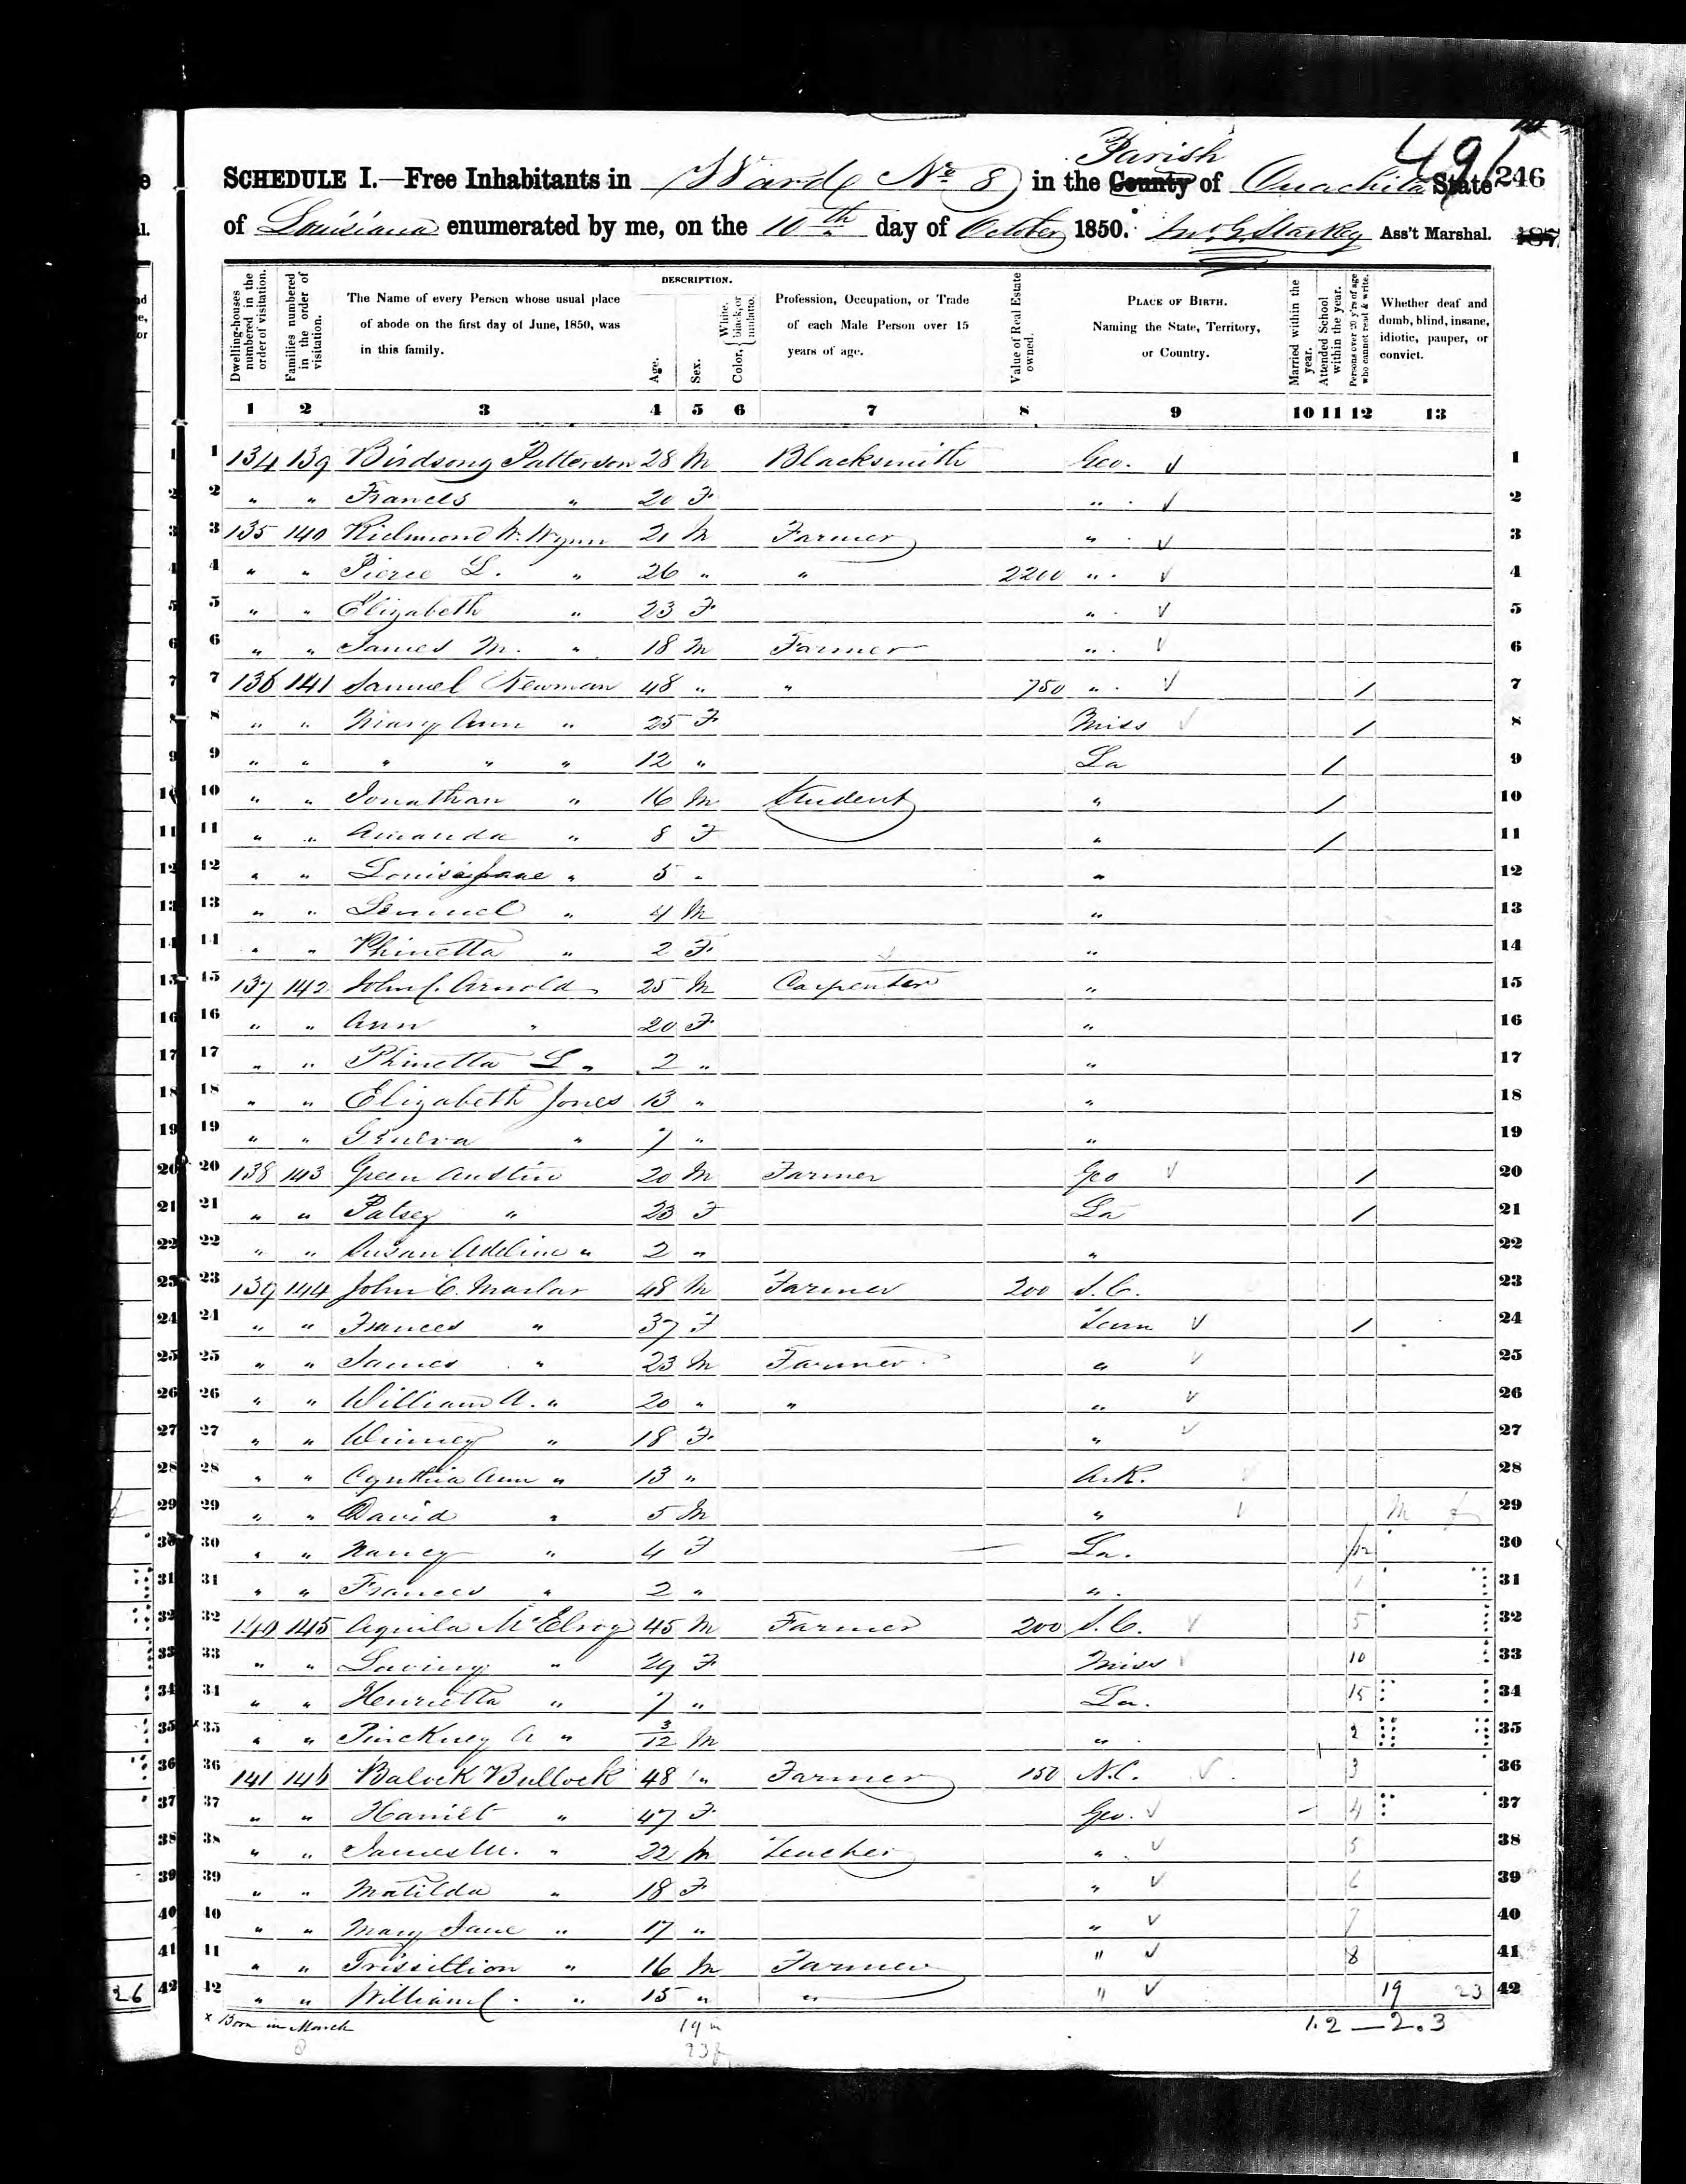 Parish
491
SCHEDULE I.—Free Inhabitants in Ward No 8 in the County of Ouachita State 246
of Louisiana enumerated by me, on the 10th day of October 1850. Ass't Marshal. 187
Dwelling-houses numbered in the order of visitation. Families numbered in the order of visitation. The Name of every Person whose usual place of abode on the first day of June, 1850, was in this family. DESCRIPTION. Age. Sex. Color, { White, black, or mulatto. Profession, Occupation, or Trade of each Male Person over 15 years of age. Value of Real Estate owned. PLACE OF BIRTH. Naming the State, Territory, or Country. Married within the year. Attended School within the year. Persons over 20 y'rs of age who cannot read & write. Whether deaf and dumb, blind, insane, idiotic, pauper, or convict.
1 2 3 4 5 6 7 8 9 10 11 12 13
1 134 139 Birdsong Patterson 28 M Blacksmith Geo. √ 1
2 " " Frances " 20 F " √ 2
3 135 140 Richmond W. Wynn 21 M Farmer " √ 3
4 " " Pierce L. " 26 " " 2200 " √ 4
5 " " Elizabeth " 23 F " √ 5
6 " " James M. " 18 M Farmer " √ 6
7 136 141 Samuel Newman 48 " " 750 " √ / 7
8 " " Mary Ann " 25 F Miss √ / 8
9 " " " " " 12 " La / 9
10 " " Jonathan " 16 M Student " / 10
11 " " Amanda " 8 F " / 11
12 " " Louisa Jane " 5 " " 12
13 " " Lemuel " 4 M " 13
14 " " Phinetta " 2 F " 14
15 137 142 John C. Arnold 25 M Carpenter " 15
16 " " Ann " 20 F " 16
17 " " Phinetta L " 2 " " 17
18 " " Elizabeth Jones 13 " " 18
19 " " " 7 " " 19
20 138 143 Green Austin 20 M Farmer Geo √ / 20
21 " " Patsey " 23 F La / 21
22 " " Susan Adeline " 2 " " 22
23 139 144 John C. Marlar 48 M Farmer 200 S.C. 23
24 " " Frances " 37 F Tenn √ / 24
25 " " James " 23 M Farmer " √ 25
26 " " William A. " 20 " " " √ 26
27 " " Winney " 18 F " √ 27
28 " " Cynthia Ann " 13 " ArK. √ 28
29 " " David " 5 M " √ M f 29
30 " " Nancy " 4 F La. 12 30
31 " " Frances " 2 " " 1 31
32 140 145 Aquila McElroy 45 M Farmer 200 S.C. √ 5 32
33 " " Laviny " 29 F Miss √ 10 33
34 " " Henrietta " 7 " La. 15 34
x35 " " Pinckney A " 3/12 M " 2 35
36 141 146 Balock Bullock 48 " Farmer 150 N.C. √ 3 36
37 " " Harriet " 47 F Geo. √ 4 37
38 " " James M. " 22 M Teacher " √ 5 38
39 " " Matilda " 18 F " √ 6 39
40 " " Mary Jane " 17 " " √ 7 40
41 " " " 16 M Farmer " √ 8 41
42 " " William C. " 15 " " " √ 19 23 42
x Born in March 19 m 1.2—2.3
23 f
26